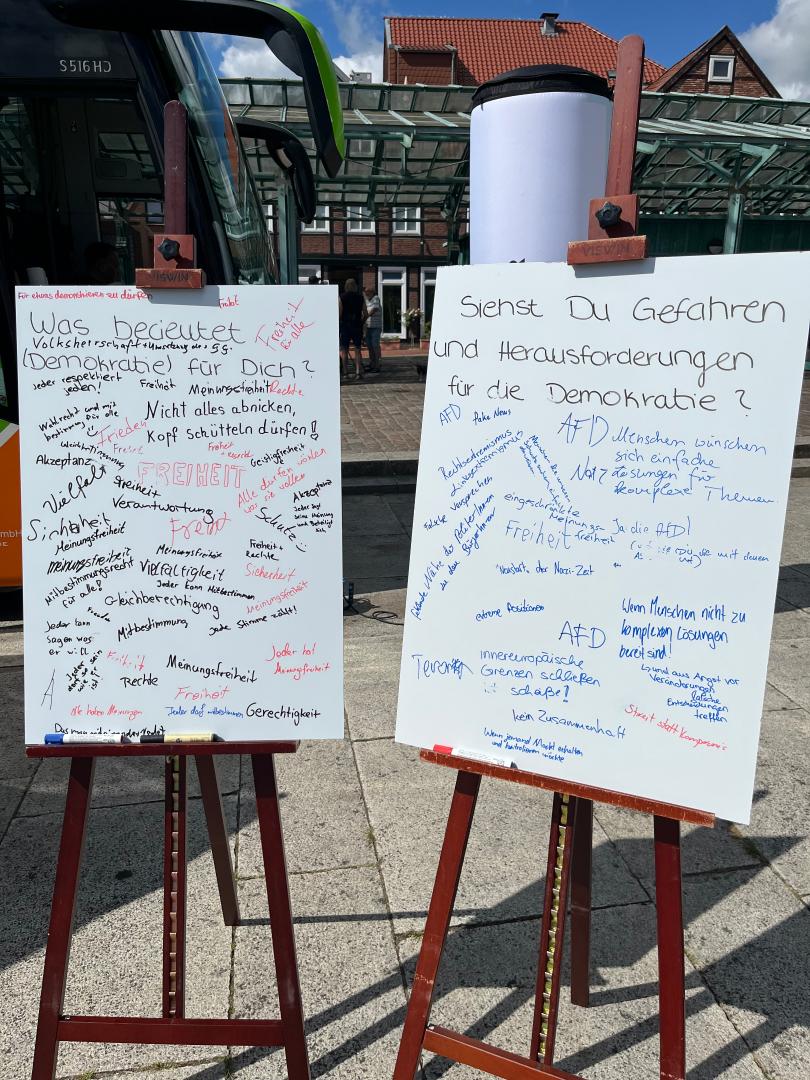 S516HD
VISWIN
Für etwas demonstrieren zu dürfen
Freiheit
für alle
Was bedeutet
Volksherrschaft
(Demokratie) für Dich?
Jeder respektiert
jeden!
Freiheit
Meinungsfreiheit
Rechte
Nicht alles abnicken,
Kopf schütteln dürfen!
Wahlrecht und mit
bestimmung für alle
Frieden
Freiheit
Akzeptanz
FREIHEIT
Geistigfreiheit
Alle dürfen wählen
was sie wollen
Vielfalt
Freiheit
Verantwortung
Akzeptanz
Jeder sagt
seine Meinung
und Beteiligt
sich
Sicherheit
Schutz :)
Meinungsfreiheit
Meinungsfreiheit
Meinungsfreiheit
Freiheit +
Rechte
Mitbestimmungsrecht
für alle!
Vielfältigkeit
Sicherheit
Jeder kann Mitbestimmen
Gleichberechtigung
Meinungsfreiheit
Jeder kann
sagen was
er will
Mitbestimmung
Jede Stimme zählt!
Freiheit
Rechte
Meinungsfreiheit
Jeder hat
Meinungsfreiheit
Freiheit
Alle haben Meinungen
Jeder darf mitbestimmen
Gerechtigkeit
VISWIN
Siehst Du Gefahren
und Herausforderungen
für die Demokratie?
AFD
fake News
AFD
Menschen wünschen
sich einfache
Lösungen für
komplexe Themen.
Rechtsextremismus
Linksextremismus
Falsche Versprechen
fehlende Nähe der PolitikerInnen
zu den BürgerInnen
eingeschränkte
Meinungs-
freiheit
Ja die AFD!
Freiheit
Neustart der Nazi-Zeit
extreme Positionen
Wenn Menschen nicht zu
komplexen Lösungen
bereit sind!
AFD
Terror
innereuropäische
Grenzen schließen
ist scheiße!
und aus Angst vor
Veränderungen
falsche
Entscheidungen
treffen
kein Zusammenhalt
Streit statt Kompromis
Wenn jemand Macht erhalten
und kontrollieren möchte